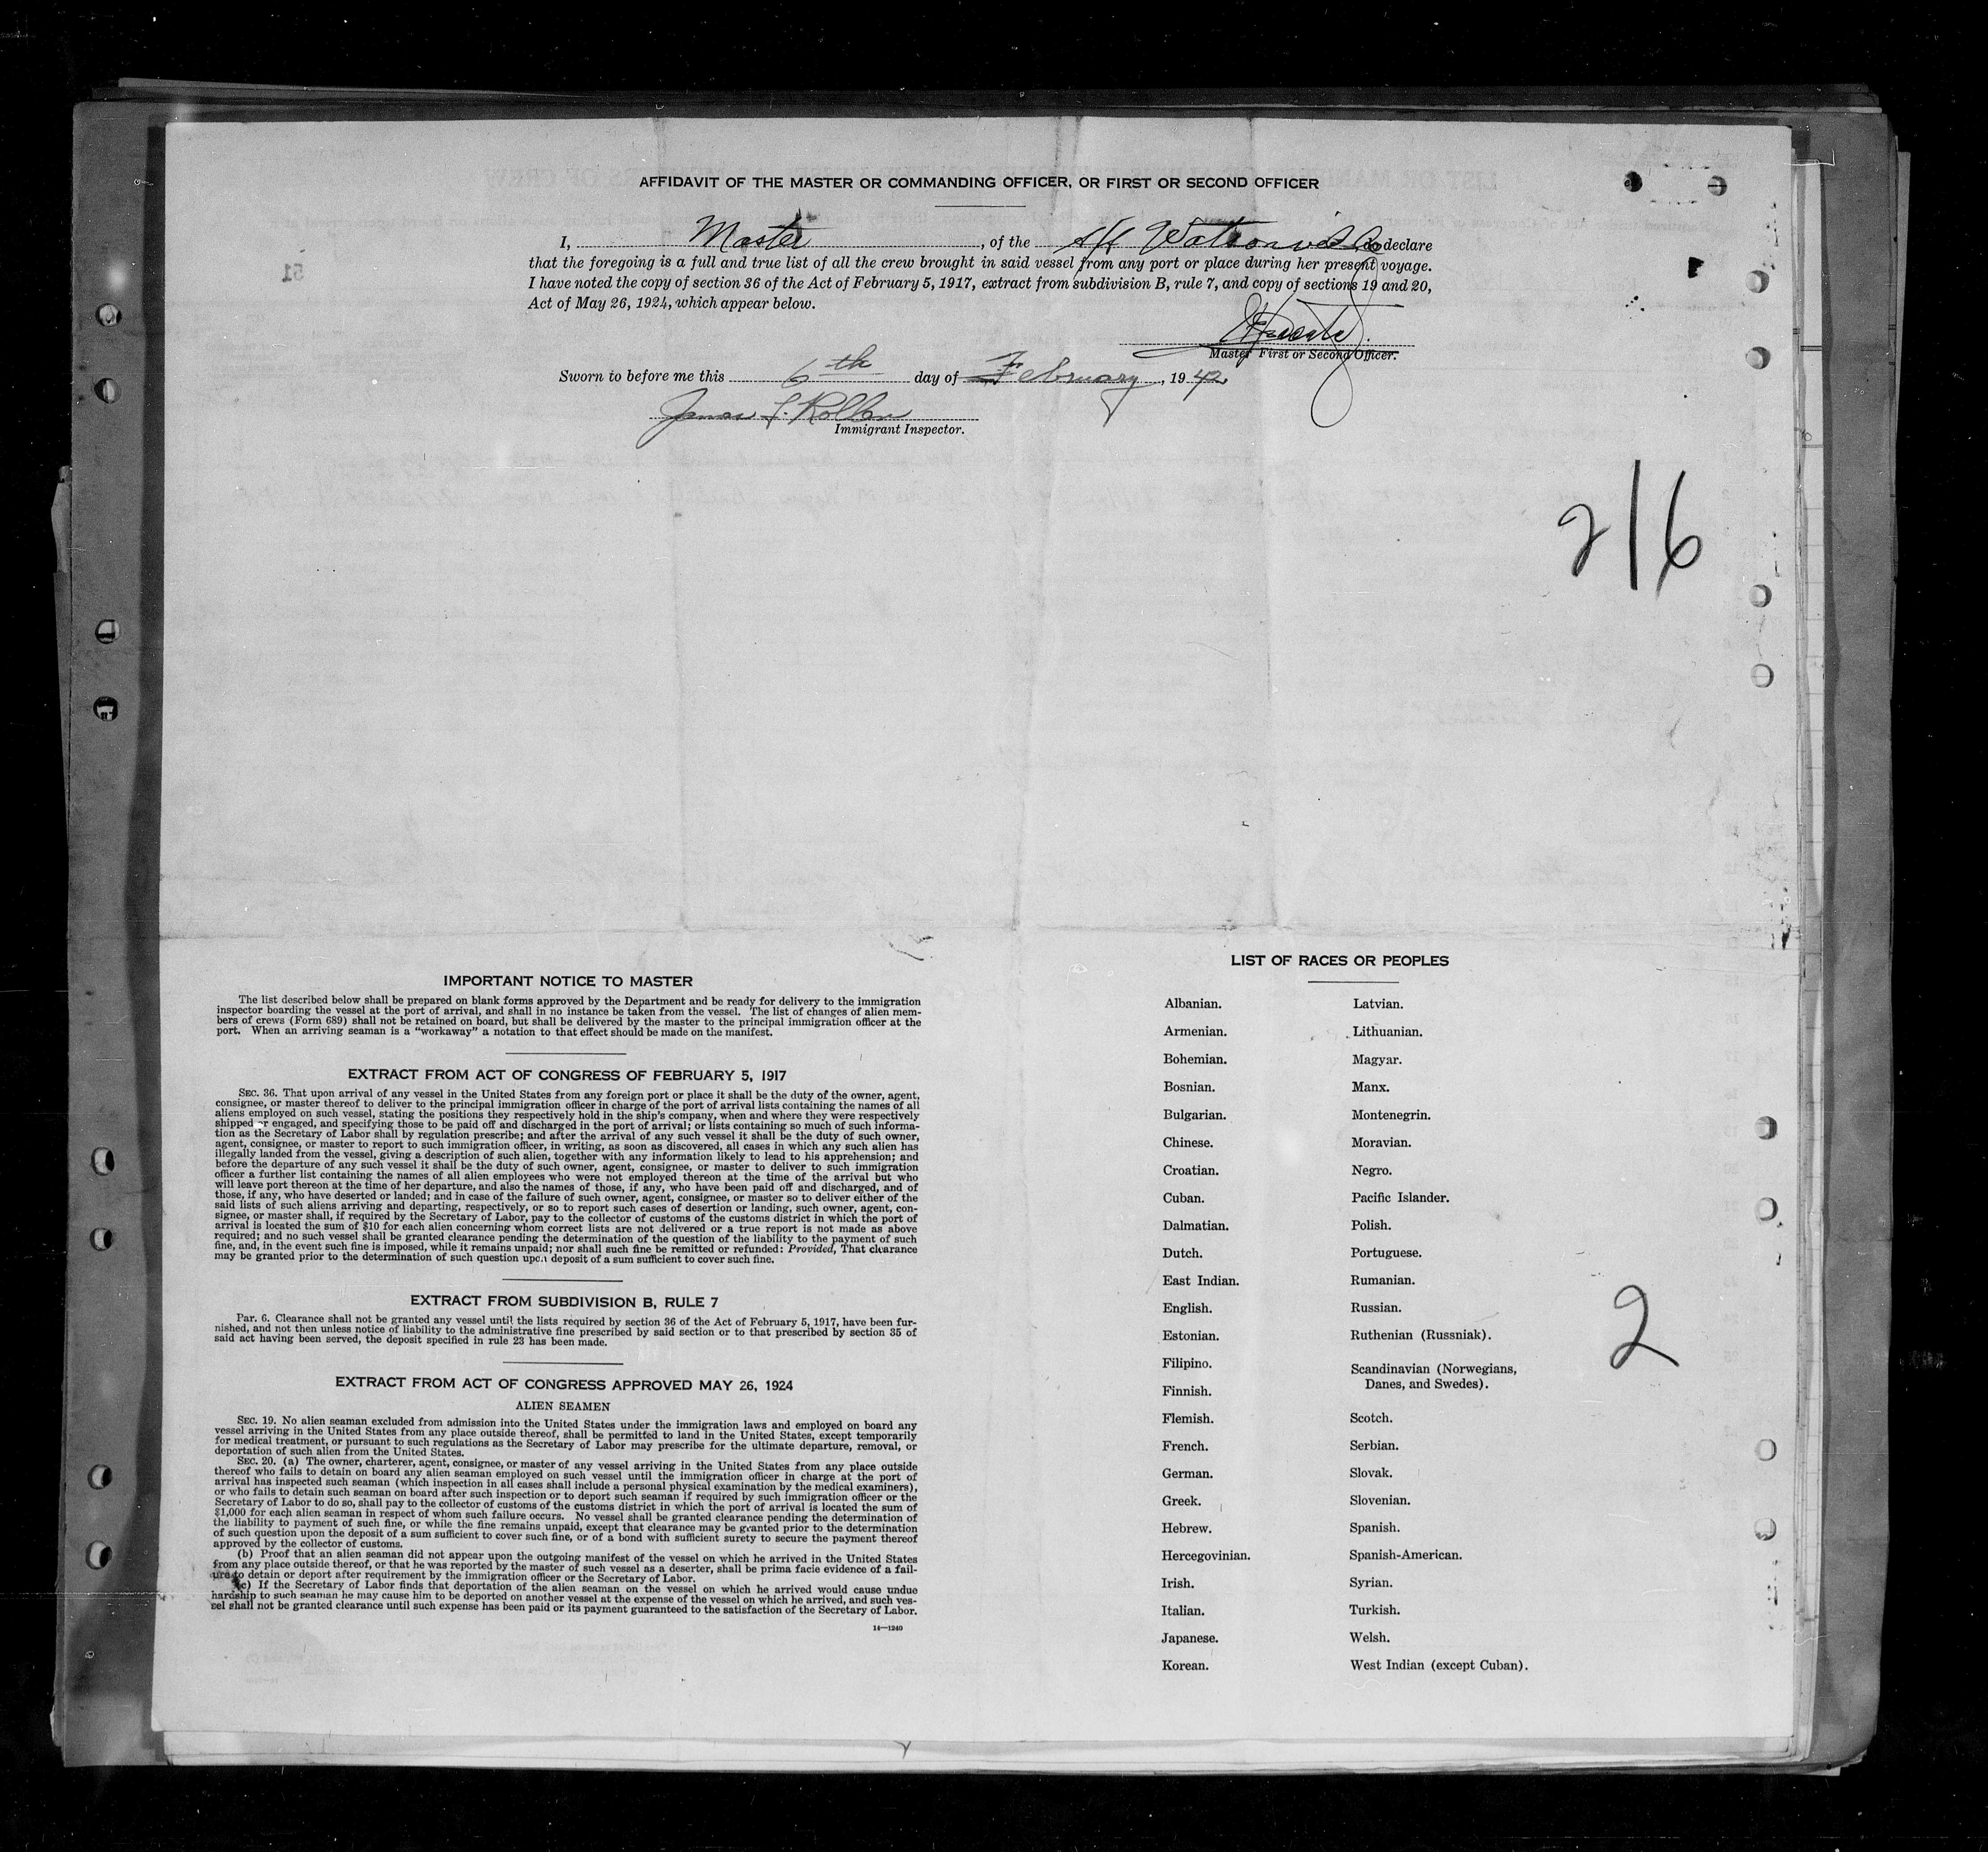 AFFIDAVIT OF THE MASTER OR COMMANDING OFFICER, OR FIRST OR SECOND OFFICER
I, Master, of the do declare
that the foregoing is a full and true list of all the crew brought in said vessel from any port or place during her present voyage.
I have noted the copy of section 36 of the Act of February 5, 1917, extract from subdivision B, rule 7, and copy of sections 19 and 20,
Act of May 26, 1924, which appear below.
Master First or Second Officer.
Sworn to before me this 6th day of February, 1942
Immigrant Inspector.
51
216
IMPORTANT NOTICE TO MASTER
The list described below shall be prepared on blank forms approved by the Department and be ready for delivery to the immigration
inspector boarding the vessel at the port of arrival, and shall in no instance be taken from the vessel. The list of changes of alien mem-
bers of crews (Form 689) shall not be retained on board, but shall be delivered by the master to the principal immigration officer at the
port. When an arriving seaman is a "workaway" a notation to that effect should be made on the manifest.
EXTRACT FROM ACT OF CONGRESS OF FEBRUARY 5, 1917
SEC. 36. That upon arrival of any vessel in the United States from any foreign port or place it shall be the duty of the owner, agent,
consignee, or master thereof to deliver to the principal immigration officer in charge of the port of arrival lists containing the names of all
aliens employed on such vessel, stating the positions they respectively hold in the ship's company, when and where they were respectively
shipped or engaged, and specifying those to be paid off and discharged in the port of arrival; or lists containing so much of such informa-
tion as the Secretary of Labor shall by regulation prescribe; and after the arrival of any such vessel it shall be the duty of such owner,
agent, consignee, or master to report to such immigration officer, in writing, as soon as discovered, all cases in which any such alien has
illegally landed from the vessel, giving a description of such alien, together with any information likely to lead to his apprehension; and
before the departure of any such vessel it shall be the duty of such owner, agent, consignee, or master to deliver to such immigration
officer a further list containing the names of all alien employees who were not employed thereon at the time of the arrival but who
will leave port thereon at the time of her departure, and also the names of those, if any, who have been paid off and discharged, and of
those, if any, who have deserted or landed; and in case of the failure of such owner, agent, consignee, or master so to deliver either of the
said lists of such aliens arriving and departing, respectively, or so to report such cases of desertion or landing, such owner, agent, con-
signee, or master shall, if required by the Secretary of Labor, pay to the collector of customs of the customs district in which the port of
arrival is located the sum of $10 for each alien concerning whom correct lists are not delivered or a true report is not made as above
required; and no such vessel shall be granted clearance pending the determination of the question of the liability to the payment of such
fine, and, in the event such fine is imposed, while it remains unpaid; nor shall such fine be remitted or refunded: Provided, That clearance
may be granted prior to the determination of such question upon deposit of a sum sufficient to cover such fine.
EXTRACT FROM SUBDIVISION B, RULE 7
Par. 6. Clearance shall not be granted any vessel until the lists required by section 36 of the Act of February 5, 1917, have been fur-
nished, and not then unless notice of liability to the administrative fine prescribed by said section or to that prescribed by section 35 of
said act having been served, the deposit specified in rule 23 has been made.
EXTRACT FROM ACT OF CONGRESS APPROVED MAY 26, 1924
ALIEN SEAMEN
SEC. 19. No alien seaman excluded from admission into the United States under the immigration laws and employed on board any
vessel arriving in the United States from any place outside thereof, shall be permitted to land in the United States, except temporarily
for medical treatment, or pursuant to such regulations as the Secretary of Labor may prescribe for the ultimate departure, removal, or
deportation of such alien from the United States.
SEC. 20. (a) The owner, charterer, agent, consignee, or master of any vessel arriving in the United States from any place outside
thereof who fails to detain on board any alien seaman employed on such vessel until the immigration officer in charge at the port of
arrival has inspected such seaman (which inspection in all cases shall include a personal physical examination by the medical examiners),
or who fails to detain such seaman on board after such inspection or to deport such seaman if required by such immigration officer or the
Secretary of Labor to do so, shall pay to the collector of customs of the customs district in which the port of arrival is located the sum of
$1,000 for each alien seaman in respect of whom such failure occurs. No vessel shall be granted clearance pending the determination of
the liability to payment of such fine, or while the fine remains unpaid, except that clearance may be granted prior to the determination
of such question upon the deposit of a sum sufficient to cover such fine, or of a bond with sufficient surety to secure the payment thereof
approved by the collector of customs.
(b) Proof that an alien seaman did not appear upon the outgoing manifest of the vessel on which he arrived in the United States
from any place outside thereof, or that he was reported by the master of such vessel as a deserter, shall be prima facie evidence of a fail-
ure to detain or deport after requirement by the immigration officer or the Secretary of Labor.
(c) If the Secretary of Labor finds that deportation of the alien seaman on the vessel on which he arrived would cause undue
hardship to such seaman he may cause him to be deported on another vessel at the expense of the vessel on which he arrived, and such ves-
sel shall not be granted clearance until such expense has been paid or its payment guaranteed to the satisfaction of the Secretary of Labor.
14—1240
LIST OF RACES OR PEOPLES
Albanian.
Armenian.
Bohemian.
Bosnian.
Bulgarian.
Chinese.
Croatian.
Cuban.
Dalmatian.
Dutch.
East Indian.
English.
Estonian.
Filipino.
Finnish.
Flemish.
French.
German.
Greek.
Hebrew.
Hercegovinian.
Irish.
Italian.
Japanese.
Korean.
Latvian.
Lithuanian.
Magyar.
Manx.
Montenegrin.
Moravian.
Negro.
Pacific Islander.
Polish.
Portuguese.
Rumanian.
Russian.
Ruthenian (Russniak).
Scandinavian (Norwegians,
Danes, and Swedes).
Scotch.
Serbian.
Slovak.
Slovenian.
Spanish.
Spanish-American.
Syrian.
Turkish.
Welsh.
West Indian (except Cuban).
2